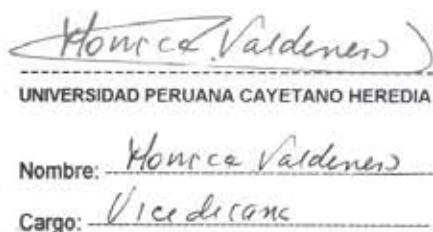 Monica Valdenero
UNIVERSIDAD PERUANA CAYETANO HEREDIA
Nombre: Monica Valdenero
Cargo: Vicedecana